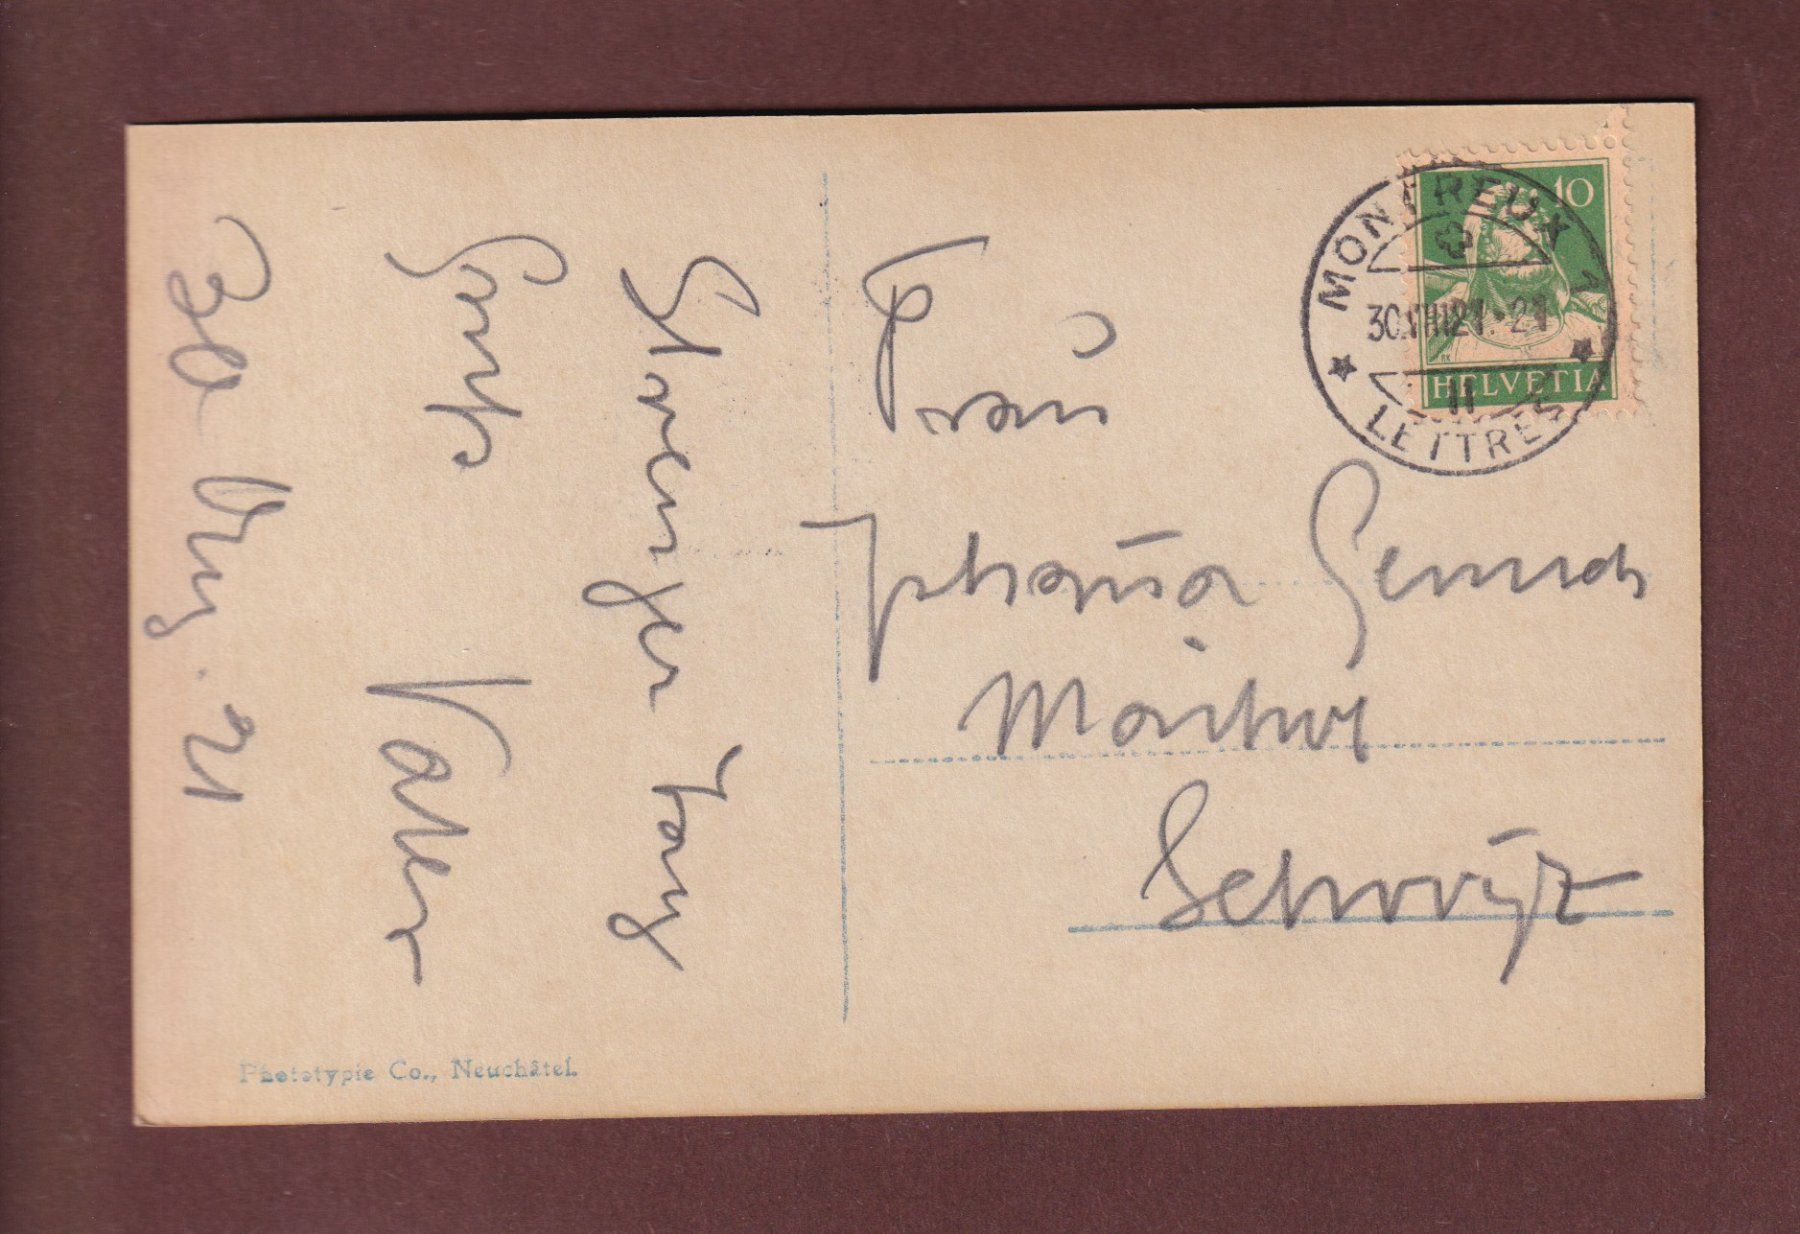 Strenger Tag
Gruss
Vater
30 Aug. 21
Phototypie Co., Neuchâtel.
Frau
Schwyz
10
HELVETIA
MONTREUX 1
30.VIII.21.-21
II
LETTRES